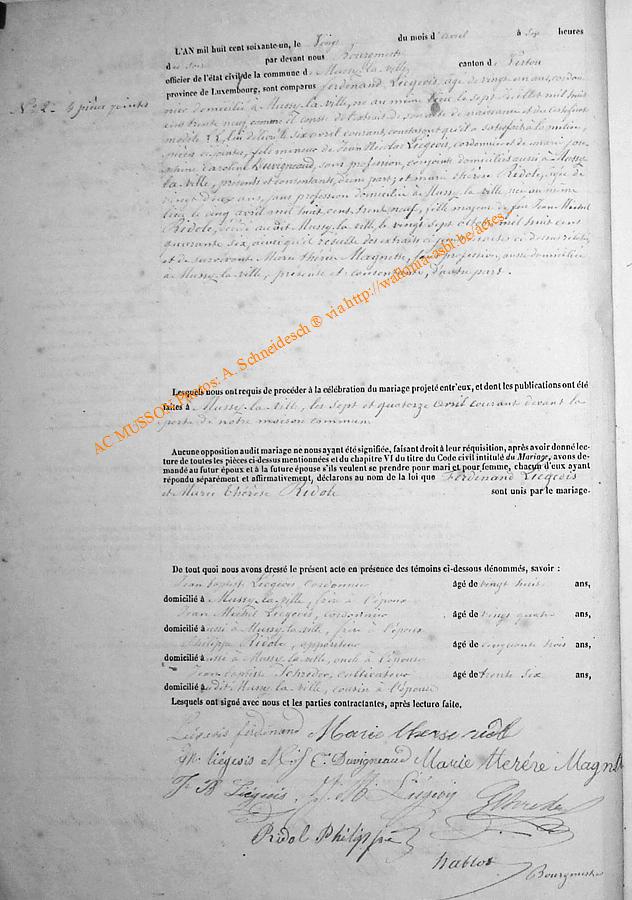 L'AN mil huit cent soixante-un, le Vingt du mois d'avril à six heures
du soir par devant nous Bourgmestre
officier de l'état civil de la commune de Mussy-la-ville canton de Virton
province de Luxembourg, sont comparus Ferdinand Liégeois, age de vingt un ans, cordon
N° 2. 4 pièces jointes
nier domicilié à Mussy-la-ville, né au même lieu le sept juillet mil huit
cent trente neuf, comme il conste de l'extrait de son acte de naissance et du certificat
modèle délivré le six avril courant constatant qu'il a satisfait à la milice,
pièces ci-jointes, fils mineur de Jean Nicolas Liégeois, cordonnier et de marie jose
phine Caroline Duvigneaud, sans profession, conjoints domiciliés aussi à Mussy-
la-ville, présents et consentants, d'une part; et marie thérèse Ridole, agée de
vingt deux ans, sans profession domiciliée à Mussy-la-ville, née au même
lieu, le cinq avril mil huit cent trente neuf, fille majeure de feu Jean Michel
Ridole, décédé audit Mussy-la-ville, le vingt sept octobre mil huit cent
quarante six, ainsi qu'il résulte des extraits
et de survivante Marie thérèse Magnette, sans profession, aussi domiciliée
à Mussy-la-ville, présente et consentante, d'autre part.
AC MUSSON Photos: A. Schneidesch ® via http://wallonia-asbl.be/actes...
Lesquels nous ont requis de procéder à la célébration du mariage projeté entr'eux, et dont les publications ont été
faites à Mussy-la-ville, les sept et quatorze avril courant devant la
porte de notre maison commune.
Aucune opposition audit mariage ne nous ayant été signifiée, faisant droit à leur réquisition, après avoir donné lec-
ture de toutes les pièces ci-dessus mentionnées et du chapitre VI du titre du Code civil intitulé du Mariage, avons de-
mandé au futur époux et à la future épouse s'ils veulent se prendre pour mari et pour femme, chacun d'eux ayant
répondu séparément et affirmativement, déclarons au nom de la loi que Ferdinand Liégeois
et Marie thérèse Ridole sont unis par le mariage.
De tout quoi nous avons dressé le présent acte en présence des témoins ci-dessous dénommés, savoir :
Jean baptist Liégeois cordonnier âgé de vingt huit ans,
domicilié à Mussy-la-ville, frère à l'époux
Jean Michel Liégeois, cordonnier âgé de vingt quatre ans,
domicilié aussi à Mussy-la-ville, frère à l'époux
Philippe Ridole, appariteur âgé de cinquante trois ans,
domicilié aussi à Mussy-la-ville, oncle à l'épouse
Jean baptiste Schroder, cultivateur âgé de trente six ans,
domicilié audit Mussy-la-ville, cousin à l'épouse
Lesquels ont signé avec nous et les parties contractantes, après lecture faite.
Liégeois ferdinand Marie therse ridol
liégeois M. J. C. Duvigneaud Marie therére Magn
J B Liégeois J. M Liégeois
Ridol Philippe
Bourgmestre